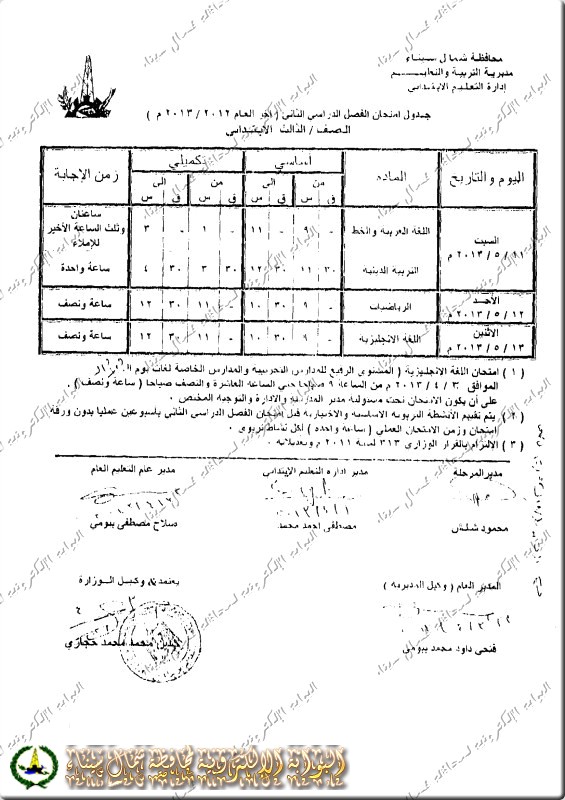 محافظة شمال سيناء
مديرية التربية والتعليم
إدارة التعليم الابتدائى
جدول امتحان الفصل الدراسى الثانى ( اخر العام ٢٠١٢ / ٢٠١٣ م )
الصف / الثالث الابتدائى
اليوم والتاريخ
المادة
أساسي
تكميلي
زمن الإجابة
من
الى
من
الى
ق س ق س ق س ق س
السبت
١١ / ٥ / ٢٠١٣ م
اللغة العربية والخط
- ٩ - ١١ - ١ - ٣
ساعتان وثلث الساعة الأخير للإملاء
التربية الدينية
٣٠ ١١ ٣٠ ١٢ ٣٠ ٣ ٣٠ ٤
ساعة واحدة
الأحد
١٢ / ٥ / ٢٠١٣ م
الرياضيات
- ٩ ٣٠ ١٠ - ١١ ٣٠ ١٢
ساعة ونصف
الأثنين
١٣ / ٥ / ٢٠١٣ م
اللغة الانجليزية
- ٩ ٣٠ ١٠ - ١١ ٣٠ ١٢
ساعة ونصف
( ١ ) امتحان اللغة الانجليزية ( المستوى الرفيع للمدارس التجريبية والمدارس الخاصة لغات يوم
الموافق ٣ / ٤ / ٢٠١٣ م من الساعة ٩ صباحا حتى الساعة العاشرة والنصف صباحا ( ساعة ونصف )
على أن يكون الامتحان تحت مسئولية مدير المدرسة والادارة والتوجيه المختص .
( ٢ ) يتم تقييم الأنشطة التربوية الاساسية والاختيارية قبل امتحان الفصل الدراسى الثانى بأسبوعين عمليا بدون ورقة
امتحان وزمن الامتحان العملي ( ساعة واحدة ) لكل نشاط تربوى .
( ٣ ) الالتزام بالقرار الوزارى ٣١٣ لسنة ٢٠١١ م وتعديلاته .
مدير المرحلة
مدير ادارة التعليم الإبتدائي
مدير عام التعليم العام
محمود شلش
مصطفى احمد محمد
صلاح مصطفى بيومي
المدير العام ( وكيل المديرية )
يعتمد ،، وكيل الوزارة
فتحى داود محمد بيومي
محمد محمد حجازي
البوابة الإلكترونية لمحافظة شمال سيناء